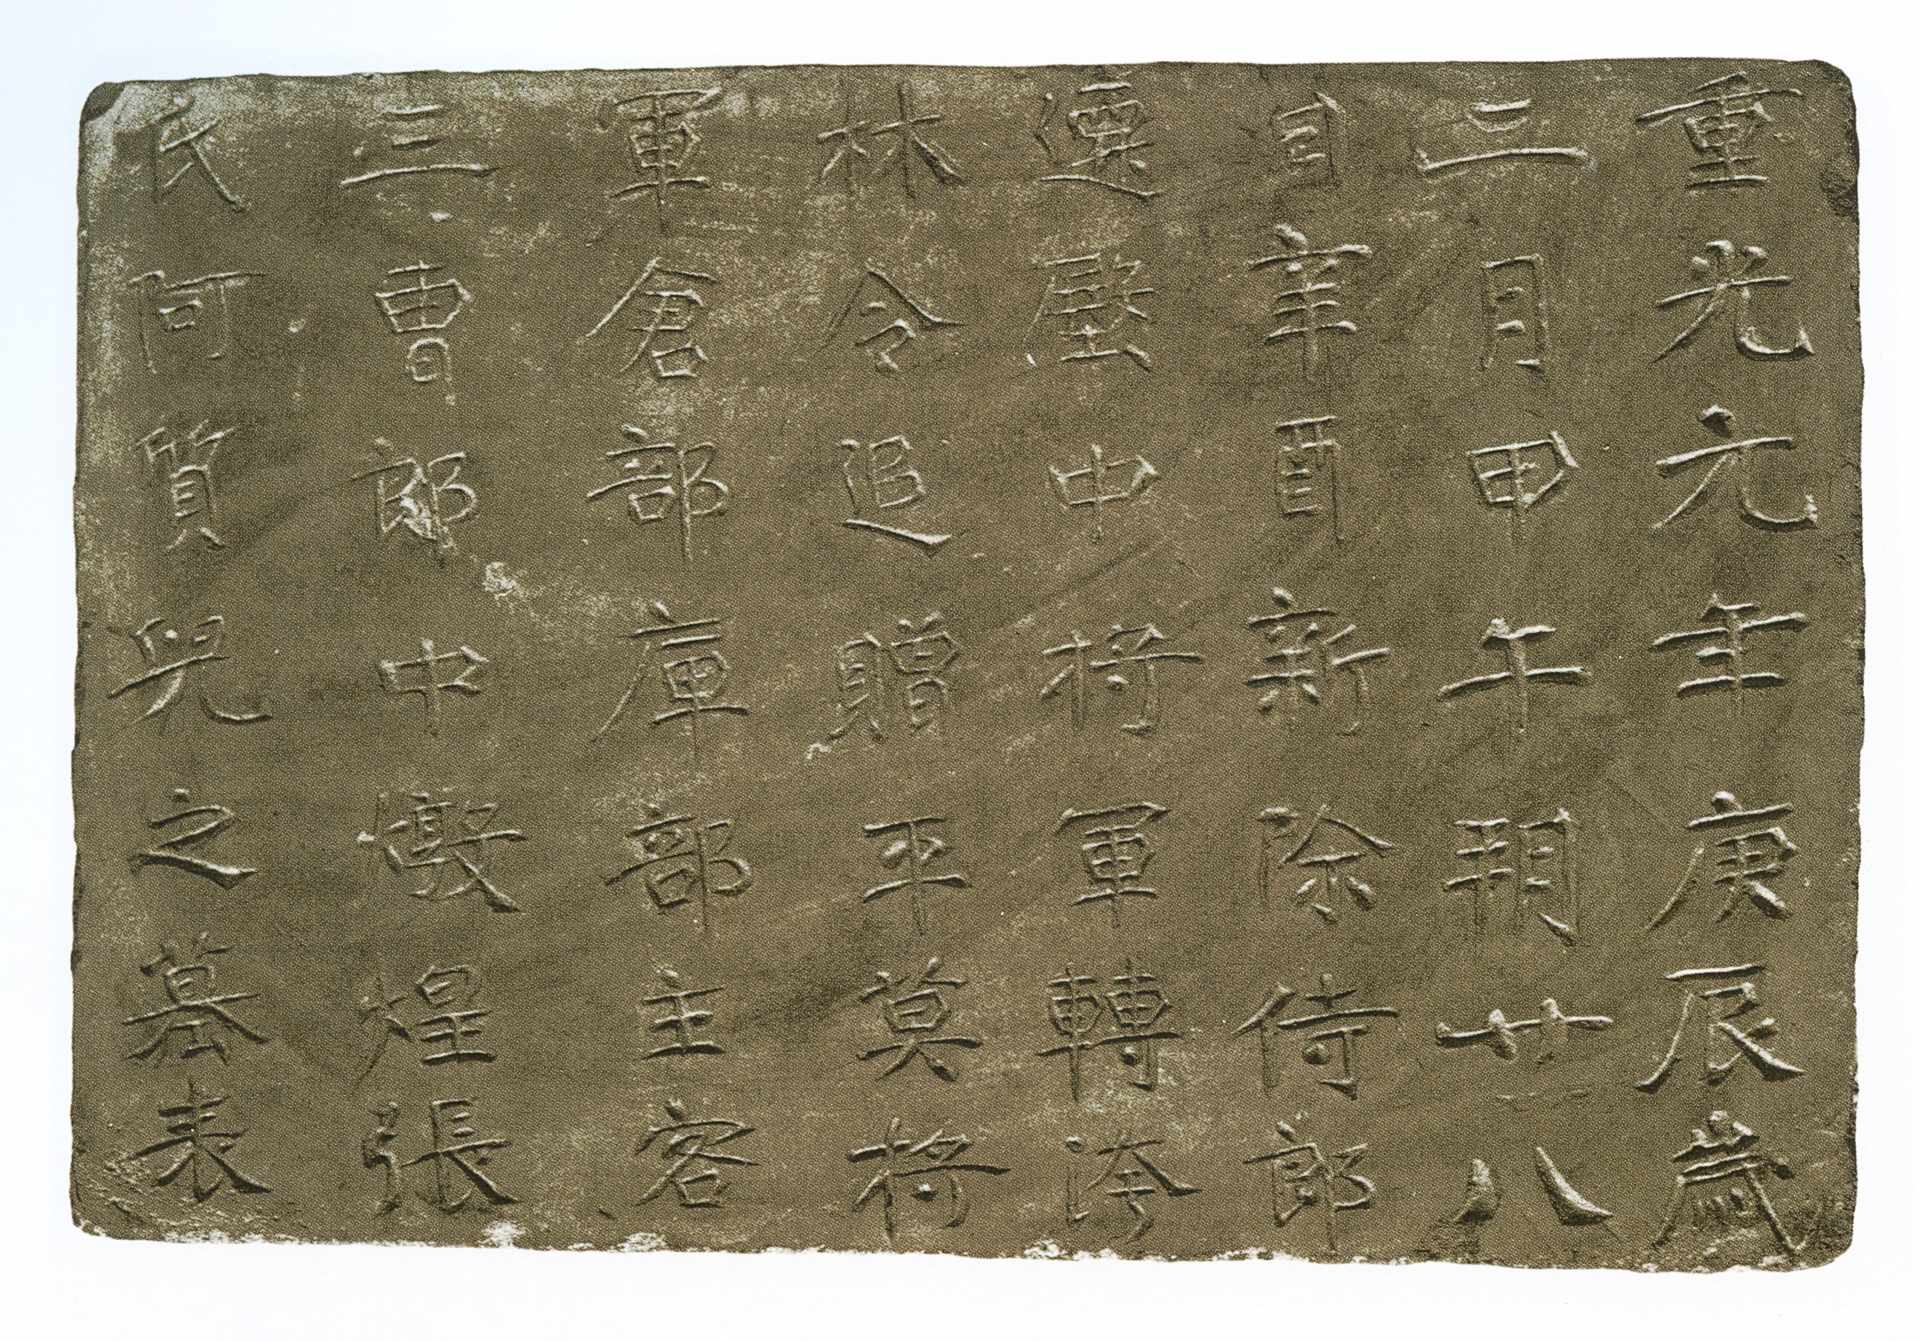 重光元年庚辰歲
二月甲午朔廿八
日辛酉新除侍郎
遷壂中將軍轉洿
林令追贈平莫將
軍倉部庫部主客
三曹郎中燉煌張
氏阿質兒之墓表